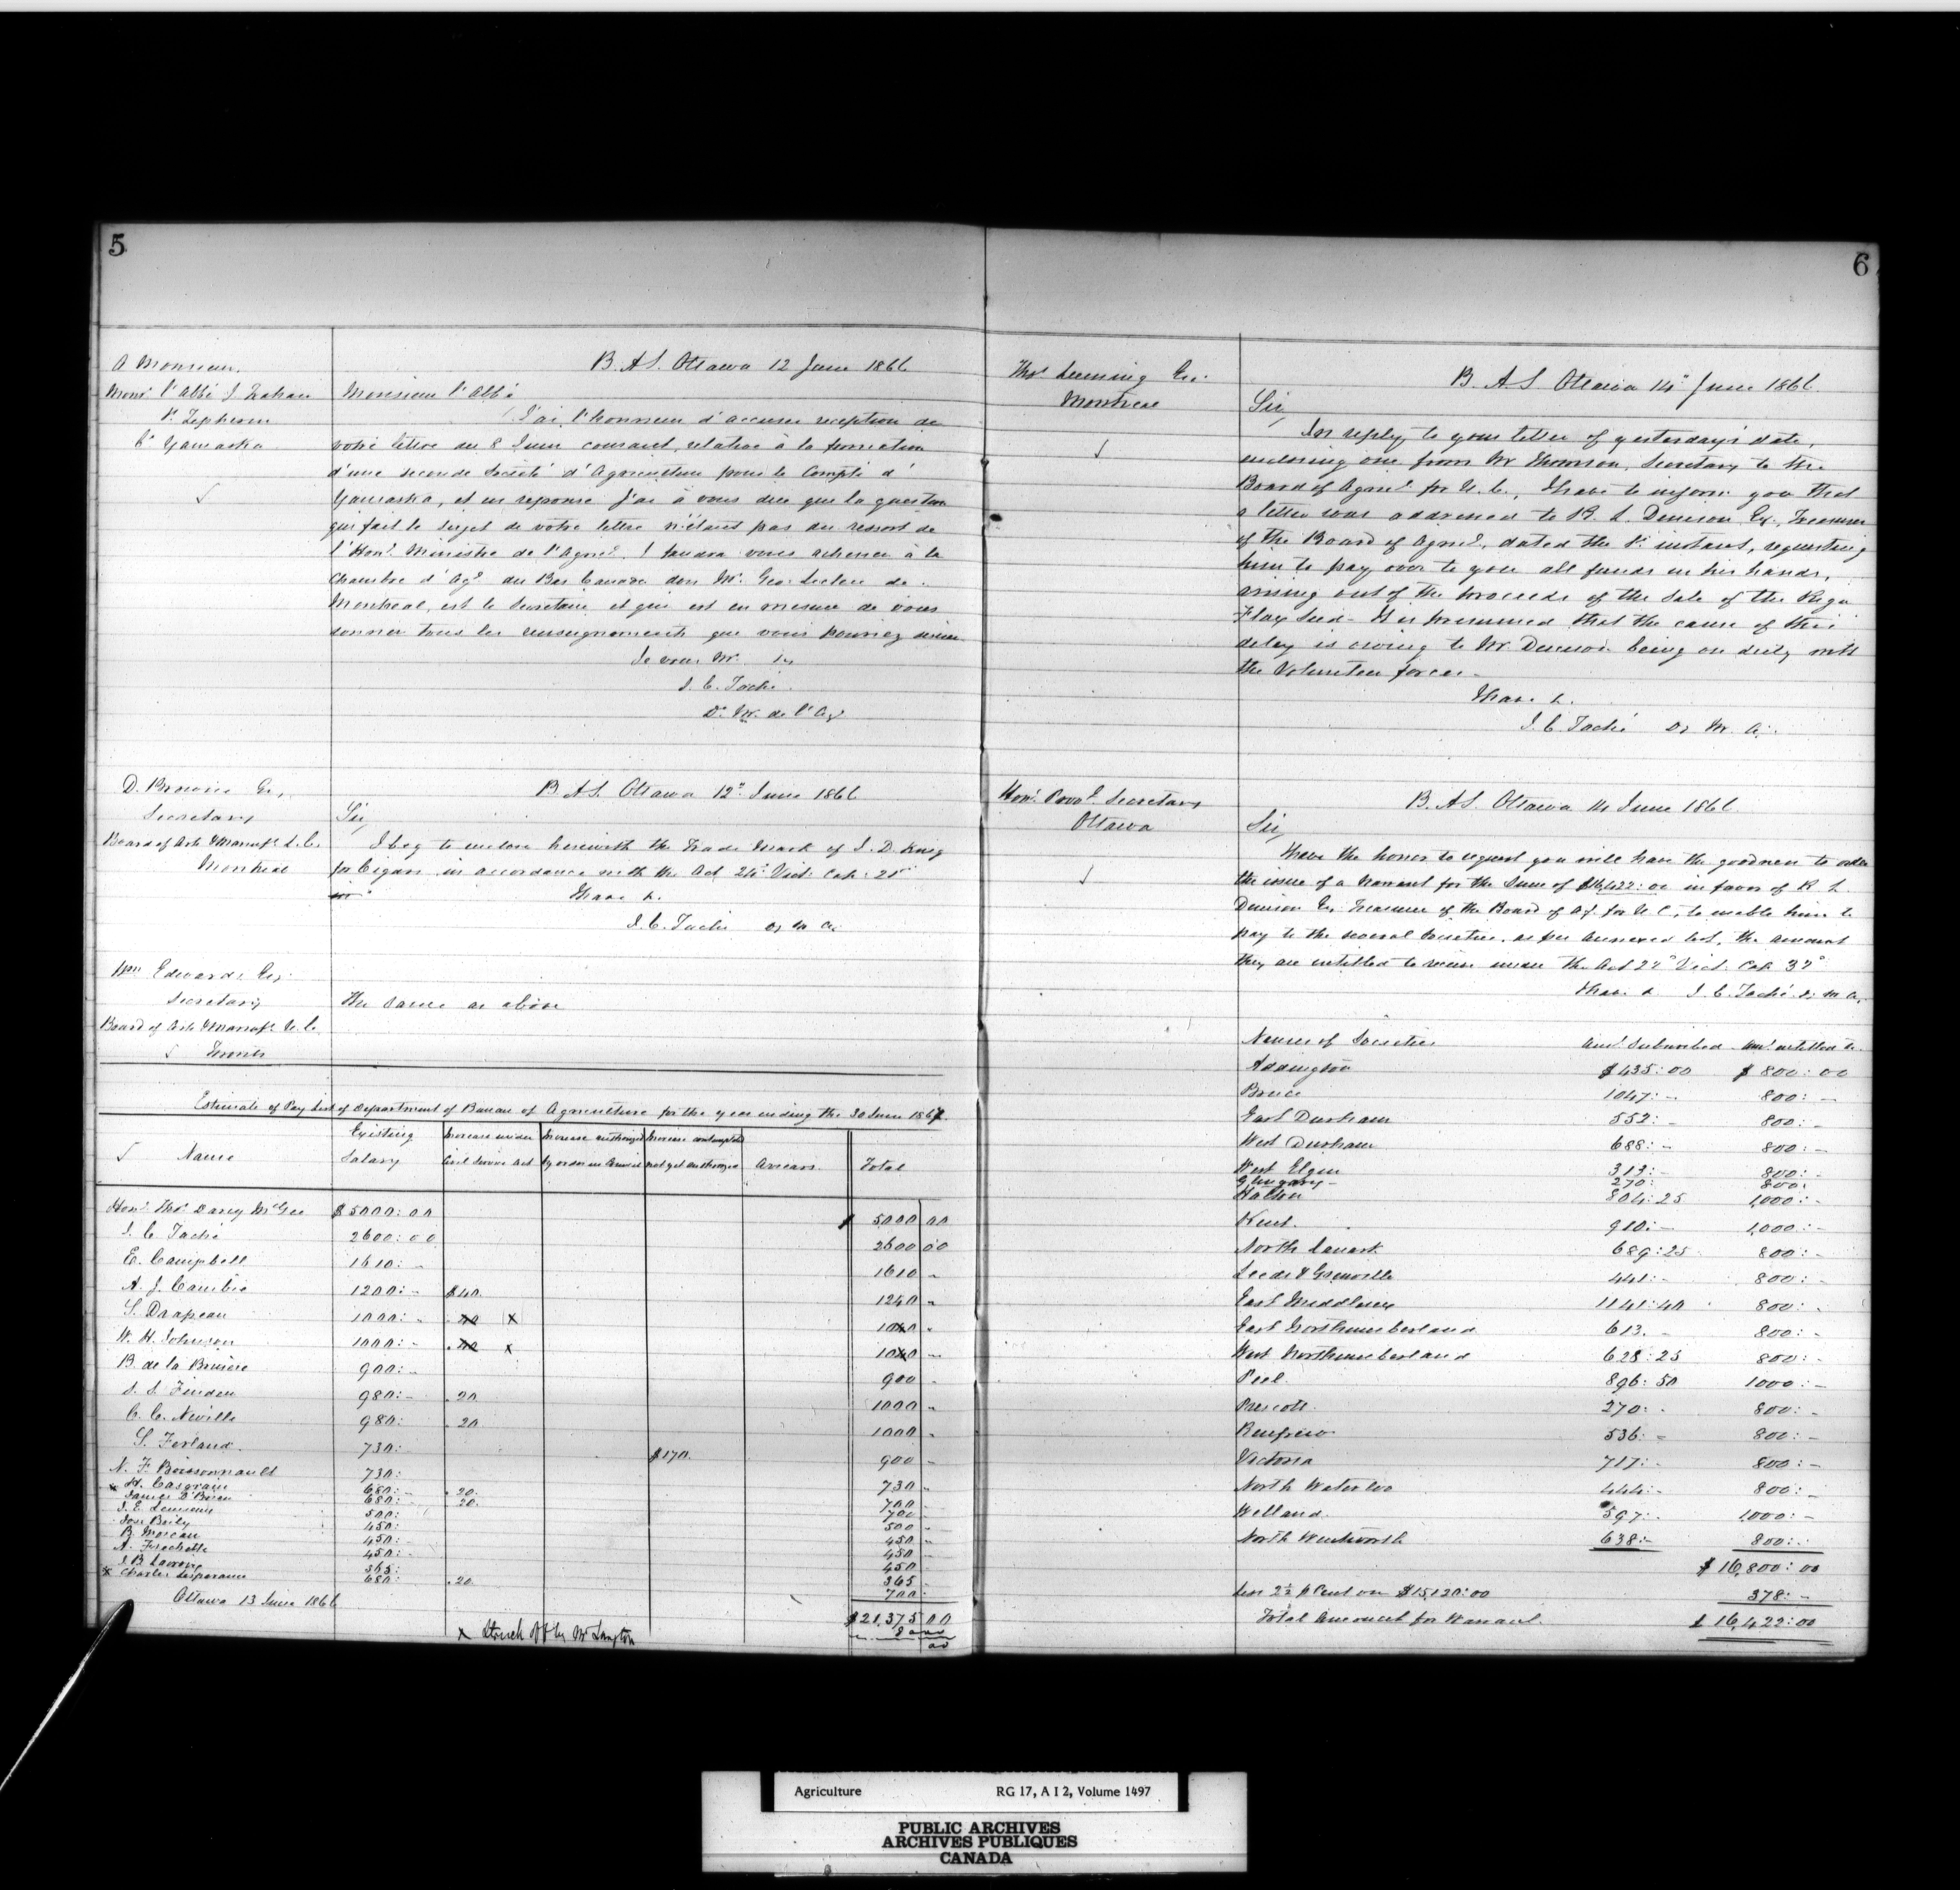 5
A Monsieur
Monsr l'Abbé J.
St Zephirin
Ct Yamaska
B. A S. Ottawa 12 June 1866
Monsieur l'Abbé
J'ai l'honneur d'accuser reception de
votre lettre du 8 Juin courant, relative à la formation
d'une seconde Societé d'Agriculture pour le Compté d'
Yamaska, et en reponse j'ai à vous dire que la question
qui fait le sujet de votre lettre n'étant pas du ressort de
l'Honl Ministre de l'Agrel. I faudra vous adresser à la
Chambre d'Agl du Bas Canada don Mr. Geo. Leclere de
Montreal, est le Secretaire et qui est en mesure de vous
donner tous les renseignements que vous pourriez desirer
Je vous Mr. &c
J. C. Taché
D. M. de l'Ag
D. Brownie Esq,
Secretary
Board of Arts & Manufs L. C.
Montreal
B. A S. Ottawa 12" June 1866
Sir,
I beg to enclose herewith the Trade Mark of J. D. King
for Cigars in accordance with the Act 24° Vict: Cap: 21
I have &.
J. C. Taché Dy M A.
Wm Edwards Esq.
Secretary
Board of Arts & Manufs U. C.
Toronto
The same as above
Estimate of Pay List of Department of Bureau of Agriculture for the year ending the 30 June 1867
Name Existing Salary Increase under Civil Service Act Increase authorized by order in Council Increase contemplated not yet authorized Arrears Total
Honl Thos Darcy McGee $5000:00 $ 5000 00
J. C. Taché 2600:00 2600 00
E. Campbell 1610:- 1610 -
A. J. Cambie 1200:- $40 1240 -
S. Drapeau 1000:- 40 x 1040 -
W. H. Johnson 1000:- 40 x 1040 -
B. de la Bruère 900:- 900 -
J. S. Finden 980:- 20 1000 -
C. C. Neville 980: 20 1000 -
S. Forland 730:- $170. 900 -
N. F. Boissonnault 730: 730 -
x H. Casgrain 680:- 20. 700 -
James O'Brien 680:- 20. 700 -
J. E. Lemieux 500: 500 -
Jos. Baily 450: 450 -
B. Moreau 450: 450 -
A. Frechette 450:- 450
J. B. 365: 365 -
x Charles Lesperance 680:- 20 700:
Ottawa 13 June 1866
$21,375 00
x Struck off by Mr Langton
6
Thos Leeming Esq.
Montreal
B. A S Ottawa 14" June 1866.
Sir,
In reply to your letter of yesterday's date,
enclosing one from Mr Thomson, Secretary to the
Board of Agrel for U. C., I have to inform you that
a letter was addressed to R. L. Denison Esq., Treasurer
of the Board of Agrel, dated the 1st instant, requesting
him to pay over to you all funds in his hands,
arising out of the proceeds of the Sale of the Riga
Flax Seed - It is presumed that the cause of the
delay is owing to Mr Denison being on duty with
the Volunteer forces.
I have &.
J. C. Taché Dy M A.
Honl Provl Secretary
Ottawa
B. A S. Ottawa 14 June 1866
Sir,
I have the honor to request you will have the goodness to order
the issue of a Warrant for the Sum of $16,422:00 in favor of R L.
Denison Esq Treasurer of the Board of Ag. for U C, to enable him to
pay to the several Societies, as per annexed list, the amount
they are entitled to receive under the Act 22° Vict. Cap. 32°
I have &. J. C. Taché Dy M A.
Names of Societies Amt Subscribed Amt entitled to
Addington $435:00 $800:00
Bruce 1047:- 800:-
East Durham 552:- 800:-
West Durham 688:- 800:-
West Elgin 313:- 800:-
Glengary 270: 800:
Halton 804:25 1,000:-
Kent 910:- 1,000:-
North Lanark 689:25 800:-
Leeds & Grenville 441:- 800:-
East Middlesex 1141:40 800:-
East Northumberland 613.- 800:-
West Northumberland 628:25 800:-
Peel 896:50 1000:-
Prescott 270:- 800:-
Renfrew 536:- 800:-
Victoria 717:- 800:-
North Waterloo 444:- 800:-
Welland 597:- 1,000:-
North Wentworth 638:- 800:-
$16,800:00
Less 2½ p Cent on $15,120:00 378:-
Total Amount for Warrant $16,422:00
Agriculture RG 17, A I 2, Volume 1497
PUBLIC ARCHIVES
ARCHIVES PUBLIQUES
CANADA